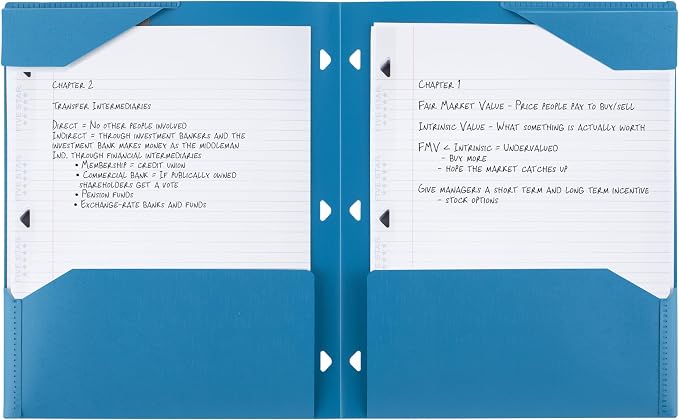 Chapter 2
Transfer Intermediaries
Direct = No other people involved
Indirect = through investment bankers and the
investment bank makes money as the middleman
Ind. through financial intermediaries
• Membership = credit union
• Commercial bank = If publically owned
shareholders get a vote
• Pension funds
• Exchange-rate banks and funds
FIVE STAR
Chapter 1
Fair Market Value - Price people pay to buy/sell
Intrinsic Value - What something is actually worth
FMV < Intrinsic = Undervalued
- Buy more
- hope the market catches up
Give managers a short term and long term incentive
- stock options
FIVE STAR